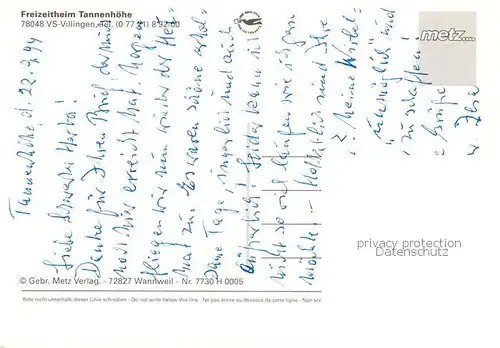 Freizeitheim Tannenhöhe
78048 VS-Villingen, Tel. (0 77 21) 8 92 60
metz...
Tannenhöhe d. 22.2.94
Liebe Schwester Herta!
Danke für Ihren Brief, der mich
noch hier erreicht hat. Morgen
fliegen wir nun wieder der Hei-
mat zu. Es waren schöne
Tage, innerlich und auch
äußerlich! Leider kann ich
nicht so viel laufen wie ich gern
möchte! -
privacy protection
Datenschutz
© Gebr. Metz Verlag, - 72827 Wannweil - Nr. 7730 H 0005
Bitte nicht unterhalb dieser Linie schreiben - Do not write below this line - Ne pas écrire au dessous de cette ligne - Non scr